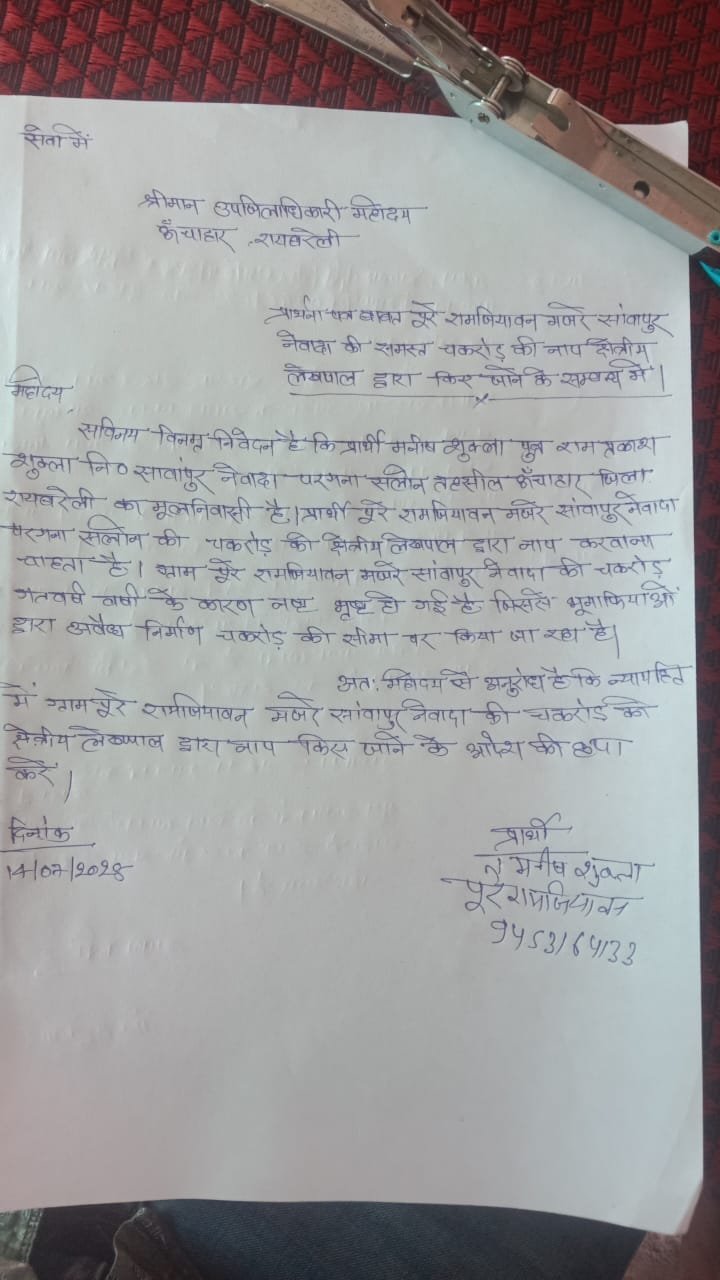 सेवा में
श्रीमान उपजिलाधिकारी महोदय
ऊँचाहार, रायबरेली
प्रार्थना पत्र बावत पूरे रामजियावन मजरे सांवापुर
नेवादा की समस्त चकरोड़ की नाप क्षेत्रीय
लेखपाल द्वारा किए जाने के सम्बन्ध में।
महोदय,
सविनय विनम्र निवेदन है कि प्रार्थी मनीष शुक्ला पुत्र राम प्रकाश
शुक्ला नि० सावांपुर नेवादा परगना सलोन तहसील ऊँचाहार जिला
रायबरेली का मूलनिवासी है। प्रार्थी पूरे रामजियावन मजरे सांवापुर नेवादा
परगना सलोन की चकरोड़ की क्षेत्रीय लेखपाल द्वारा नाप करवाना
चाहता है। ग्राम पूरे रामजियावन मजरे सांवापुर नेवादा की चकरोड़
गतवर्ष वर्षा के कारण नष्ट भ्रष्ट हो गई है, जिससे भूमाफियाओं
द्वारा अवैध निर्माण चकरोड़ की सीमा पर किया जा रहा है।
अतः महोदय से अनुरोध है कि न्यायहित
में ग्राम पूरे रामजियावन मजरे सांवापुर नेवादा की चकरोड़ को
क्षेत्रीय लेखपाल द्वारा नाप किए जाने के आदेश की कृपा
करें।
दिनांक
14/07/2025
प्रार्थी
मनीष शुक्ला
पूरे रामजियावन
9453164133